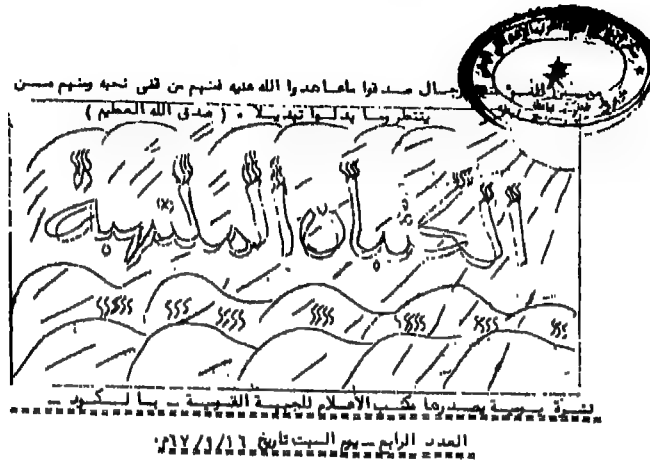 رجال صدقوا ماعاهدوا الله عليه فمنهم من قضى نحبه ومنهم مــن
ينتظر وما بدلوا تبديلا . ( صدق الله العظيم )
الكثبان الملتهبة
نشرة يومية يصدرها مكتب الأعلام للجبهة القومية ــ بالكود ــ
العدد الرابع ــ يوم السبت تاريخ ٦٧/٩/١٦م.